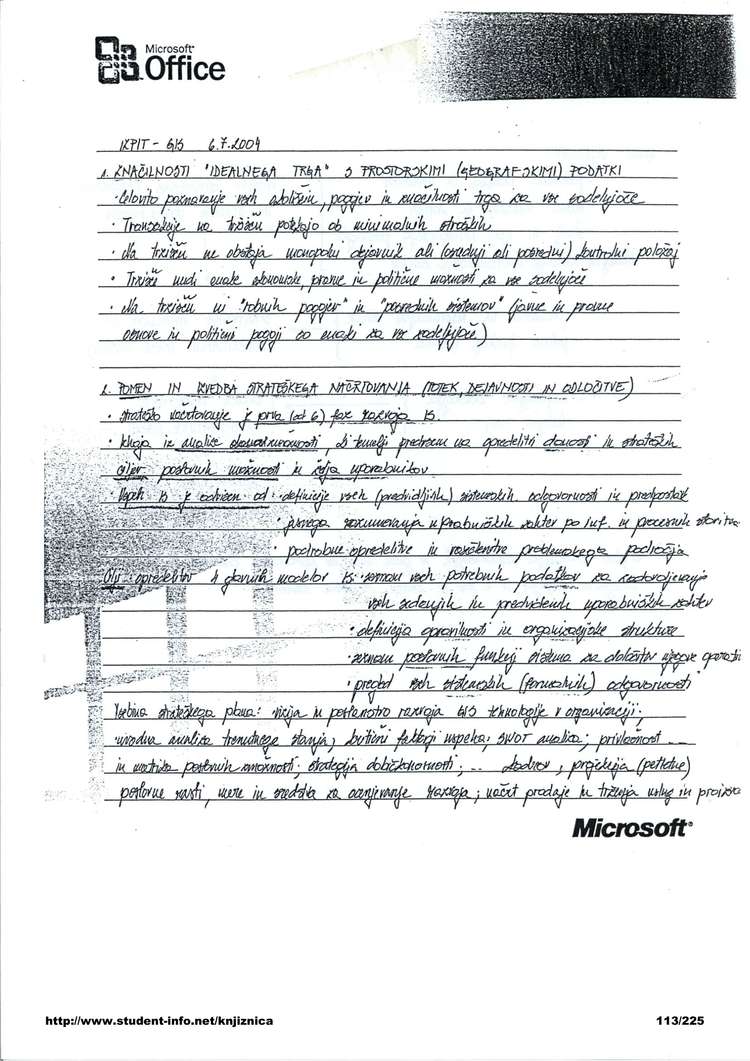 Microsoft®
Office
IZPIT - GIS 6.7.2004
1. ZNAČILNOSTI "IDEALNEGA TRGA" S PROSTORSKIMI (GEOGRAFSKIMI) PODATKI
• Celovito poznavanje vseh okoliščin, pogojev in značilnosti trga za vse sodelujoče
• Transakcije na tržišču potekajo ob minimalnih stroških
• Na tržišču ne obstaja monopolni dejavnik ali (osrednji ali posredni) kontrolni položaj
• Tržišče nudi enake ekonomske, pravne in politične možnosti za vse sodelujoče
• Na tržišču ni "robnih pogojev" in "posrednih sistemov" (javne in pravne
osnove in politični pogoji so enaki za vse sodelujoče)
2. POMEN IN IZVEDBA STRATEŠKEGA NAČRTOVANJA (POTEK, DEJAVNOSTI IN ODLOČITVE)
• Strateško načrtovanje je prva (od 6) faz razvoja IS.
• Izhaja iz analize , ki temelji predvsem na opredelitvi danosti in strateških
ciljev poslovnih možnosti in želja uporabnikov
• Uspeh IS je odvisen od: • definicije vseh (predvidljivih) sistemskih odgovornosti in predpostavk
• jasnega razumevanja uporabniških zahtev po inf. in procesnih storitvah
• podrobne opredelitve in razčlenitve problemskega področja
Cilji: opredelitev 4 glavnih modelov IS: • seznam vseh potrebnih podatkov za zadovoljevanje
vseh sedanjih in predvidenih uporabniških zahtev
• definicija opravilnosti in organizacijske strukture
• seznam poslovnih funkcij sistema za določitev njegove
• pregled vseh sistemskih (formalnih) odgovornosti
Vsebina strateškega plana: vizija in poslanstvo razvoja GIS tehnologije v organizaciji;
uvodna analiza trenutnega stanja; kritični faktorji uspeha; SWOT analiza; privlačnost ...
in matrika poslovnih zmožnosti; strategija dobičkonosnosti; ... kadrov; projekcija (petletne)
poslovne rasti, mere in sredstva za ocenjevanje razvoja; načrt prodaje in trženja uslug in
Microsoft®
http://www.student-info.net/knjiznica
113/225